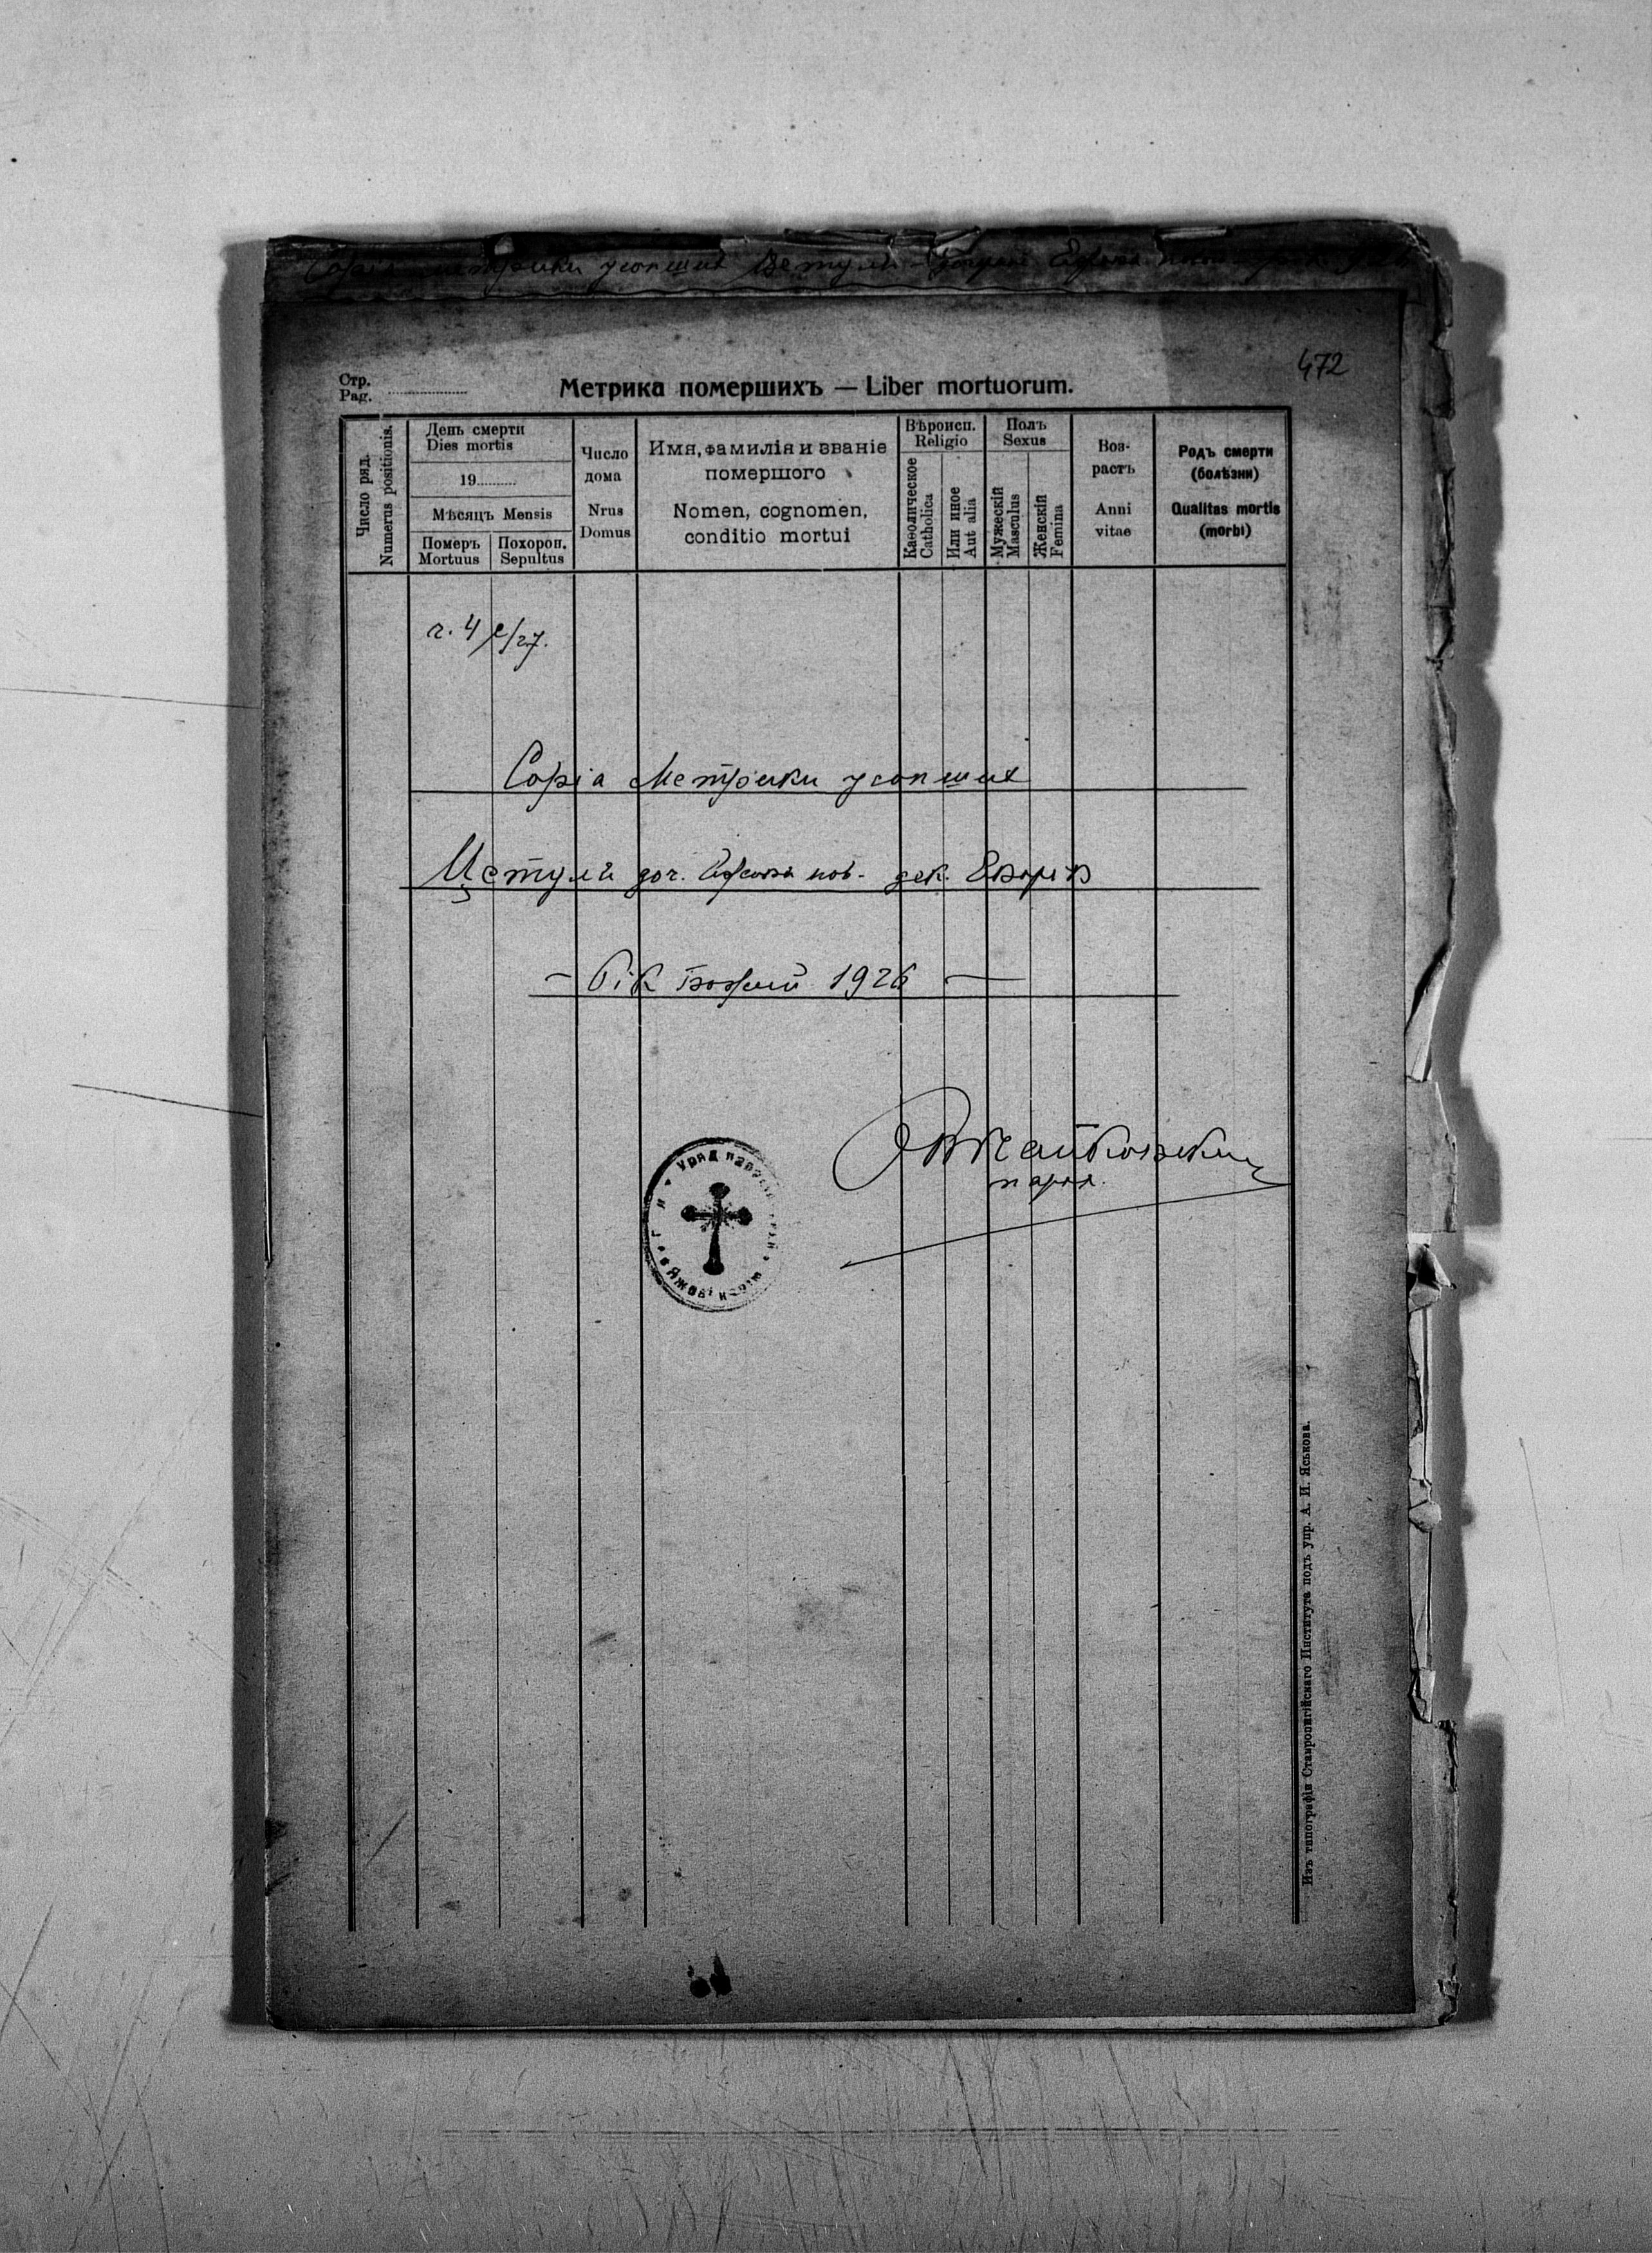 метрики усопших
472
Стр.
Pag.
Метрика помершихъ — Liber mortuorum.
Число ряд.
Numerus positionis.
День смерти
Dies mortis
19
Мѣсяць Mensis
Померъ
Mortuus
Похорон.
Sepultus
Число
дома
Nrus
Domus
Имя, фамилія и званіе
помершого
Nomen, cognomen,
conditio mortui
Вѣроисп.
Religio
Каѳолическое
Catholica
Или иное
Aut alia
Полъ
Sexus
Мужескій
Masculus
Женскій
Femina
Воз-
растъ
Anni
vitae
Родъ смерти
(болѣзни)
Qualitas mortis
(morbi)
ч. 4 /27.
Copia Метрики усопших
Цетуля доч. нов. дек.
— Рік Божий 1926 —
парох.
Уряд
Изъ типографіи Ставропигійскаго Института подъ упр. А. И. Яськова.